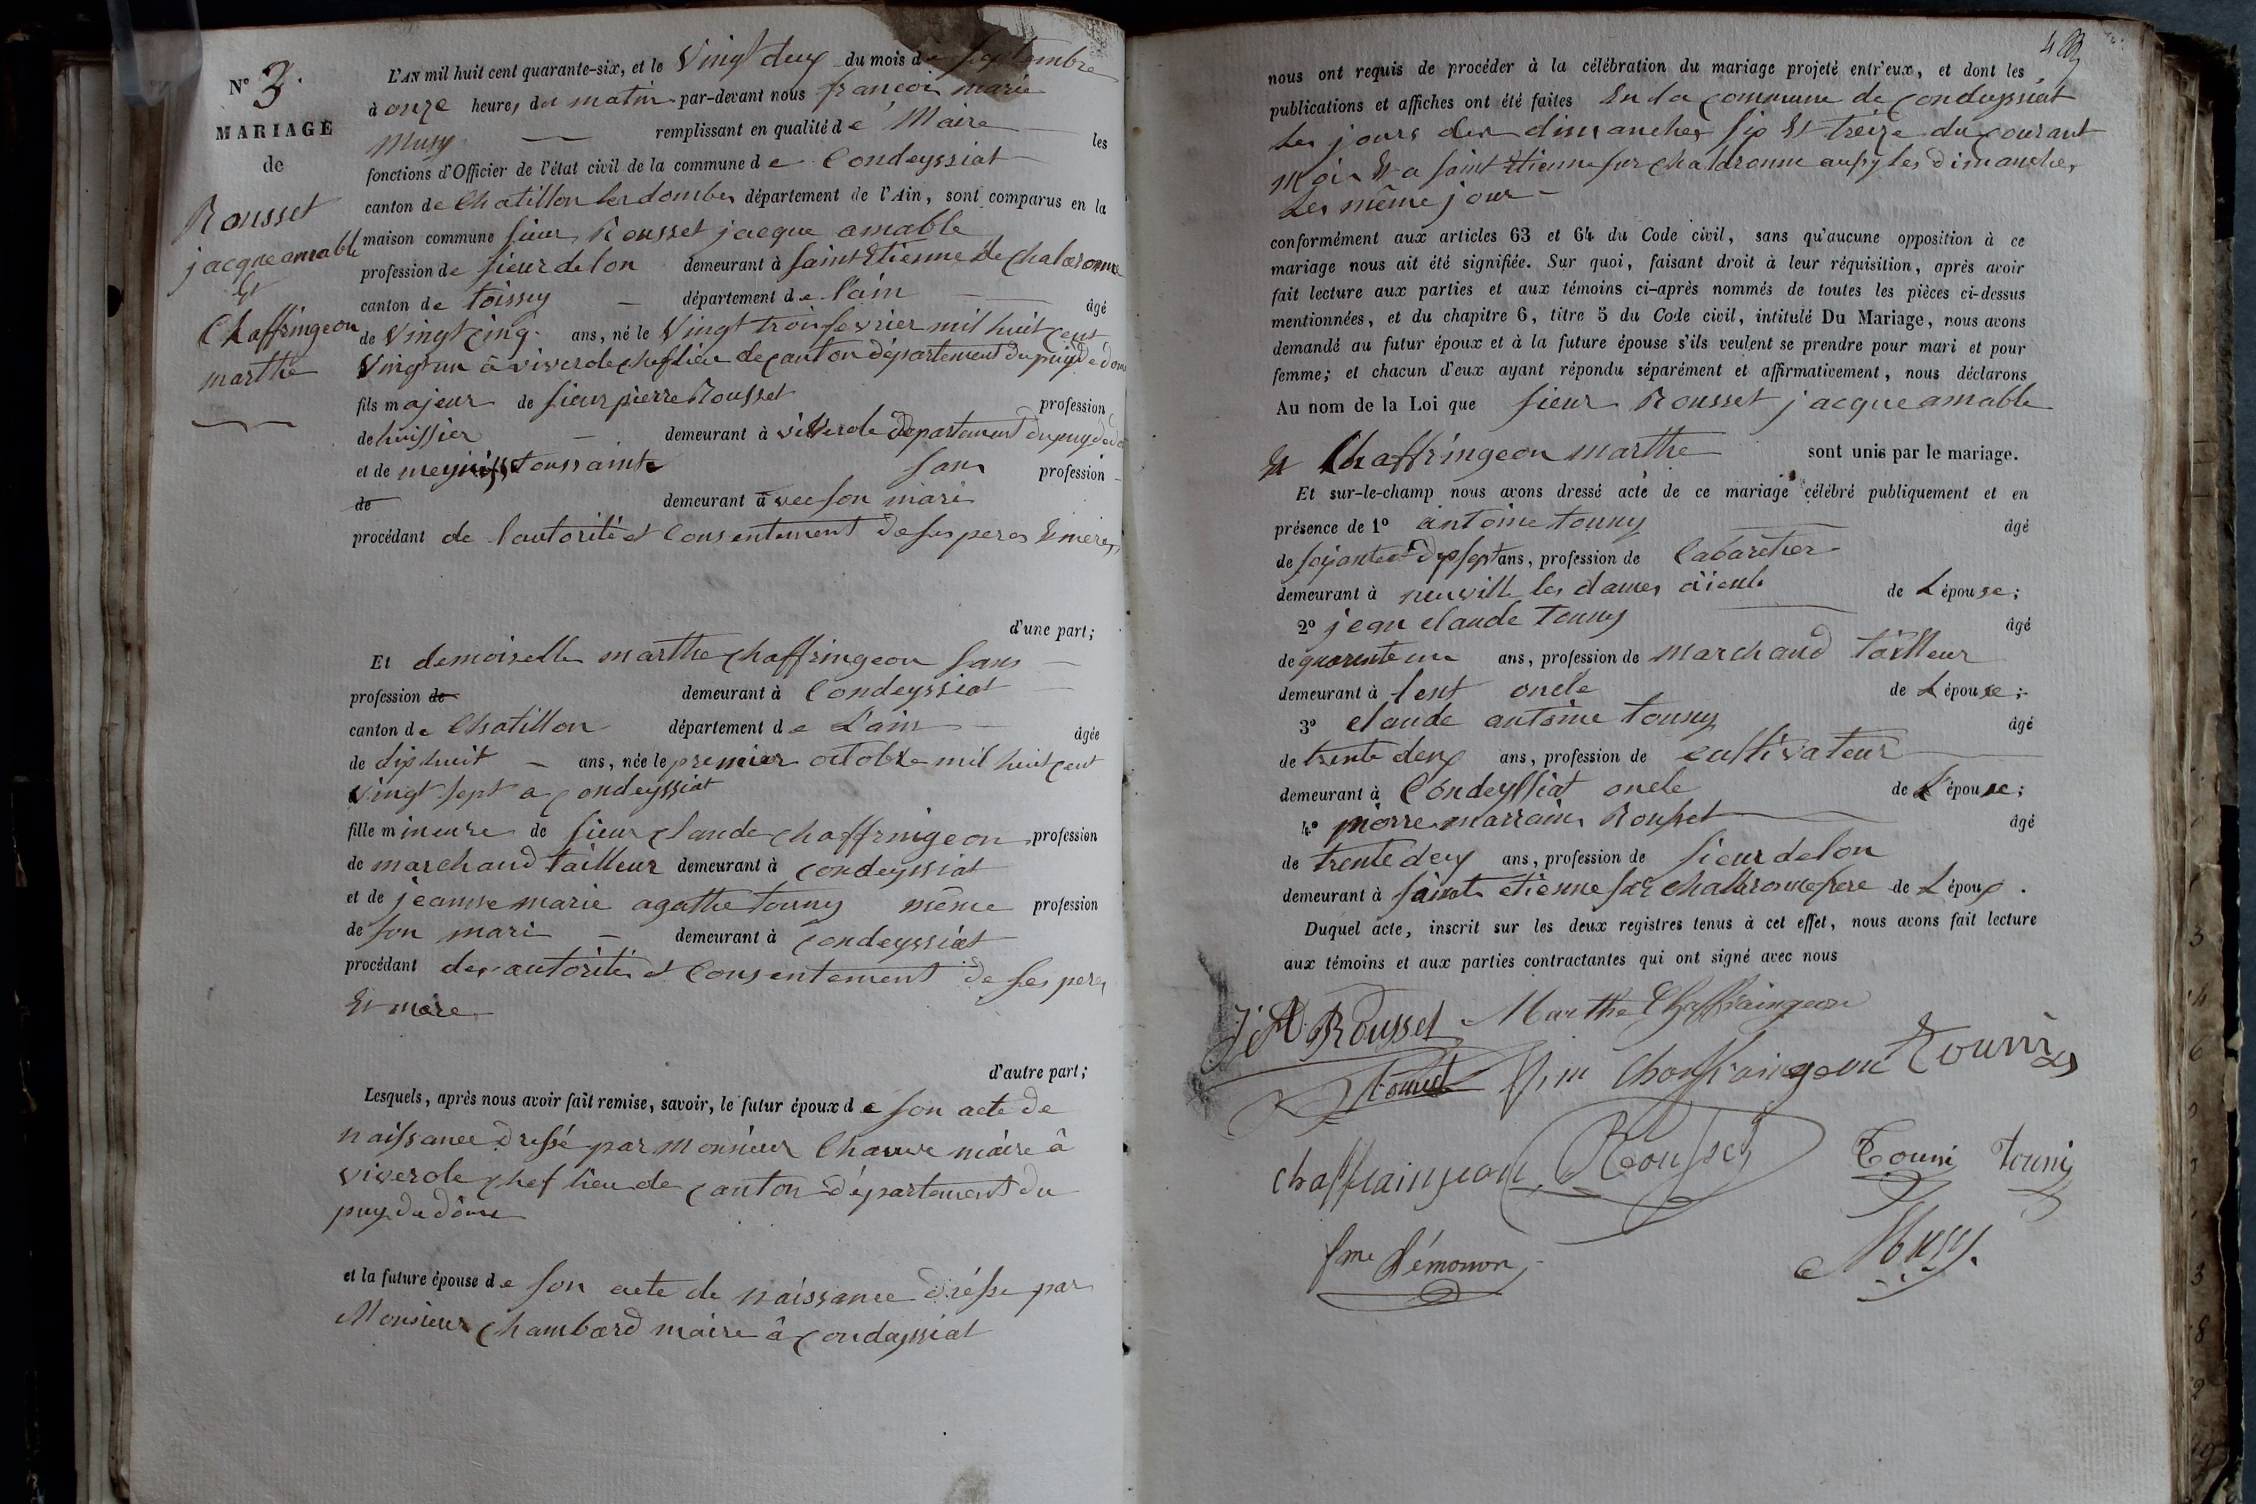 N° 3.
MARIAGE
de
Rousset
jacque amable
Et
Chaffringeon
marthe
L'AN mil huit cent quarante-six, et le Vingt deux du mois de septembre
à onze heures du matin par-devant nous françois marie
Musy remplissant en qualité de Maire les
fonctions d'Officier de l'état civil de la commune de Condeyssiat
canton de Chatillon les dombes département de l'Ain, sont comparus en la
maison commune sieur Rousset jacque amable
profession de sieur de lon demeurant à saint Etienne de Chalaronne
canton de toissey département de l'ain âgé
de Vingt cinq ans, né le Vingt trois fevrier mil huit cent
Vingt un à viverole chef lieu de canton département du puy de dome
fils majeur de sieur pierre Rousset profession
de huissier demeurant à viverole departement du puy de do
et de toussainte sans profession
de demeurant à vec son mari
procédant de l'autorité et Consentement de ses peres Et meres
d'une part;
Et demoiselle marthe chaffringeon sans
profession de demeurant à Condeyssiat
canton de Chatillon département de L'ain âgée
de dixhuit ans, née le premier octobre mil huit cent
vingt sept a condeyssiat
fille mineure de sieur claude chaffringeon profession
de marchand tailleur demeurant à condeyssiat
et de jeanne marie agathe touny même profession
de son mari demeurant à condeyssiat
procédant des autorités et Consentement de ses peres
Et mere
d'autre part;
Lesquels, après nous avoir fait remise, savoir, le futur époux de son acte de
naissance dressé par Monsieur Chauve maire à
viverole chef lieu de canton département du
puy du dôme
et la future épouse de son acte de naissance dréssé par
Monsieur chambard maire à condayssiat
nous ont requis de procéder à la célébration du mariage projeté entr'eux, et dont les
publications et affiches ont été faites En la commune de condeyssiat
Les jours des dimanches six Et treize du courant
Mois Et a saint Etienne sur chaldronne aussy les dimanches
Les même jour
conformément aux articles 63 et 64 du Code civil, sans qu'aucune opposition à ce
mariage nous ait été signifiée. Sur quoi, faisant droit à leur réquisition, après avoir
fait lecture aux parties et aux témoins ci-après nommés de toutes les pièces ci-dessus
mentionnées, et du chapitre 6, titre 5 du Code civil, intitulé Du Mariage, nous avons
demandé au futur époux et à la future épouse s'ils veulent se prendre pour mari et pour
femme; et chacun d'eux ayant répondu séparément et affirmativement, nous déclarons
Au nom de la Loi que sieur Rousset jacque amable
Et Chaffringeon marthe sont unis par le mariage.
Et sur-le-champ nous avons dressé acte de ce mariage célébré publiquement et en
présence de 1° antoine touny âgé
de soixante dix sept ans, profession de Cabaretier
demeurant à neuville les dames aieule de L'épouse;
2° jean claude touny âgé
de quarente un ans, profession de marchand tailleur
demeurant à lent oncle de L'épouse;
3° claude antoine touny âgé
de trente deux ans, profession de cultivateur
demeurant à Condeyssiat oncle de L'épouse;
4° Rousset âgé
de trente deux ans, profession de sieur de lon
demeurant à saint etienne sur chalaronne frere de L'époux.
Duquel acte, inscrit sur les deux registres tenus à cet effet, nous avons fait lecture
aux témoins et aux parties contractantes qui ont signé avec nous
J A Rousset Marthe Chaffraingeon
Chaffraingeon
chaffraingeon Rousset Touni Touni
fme Musy